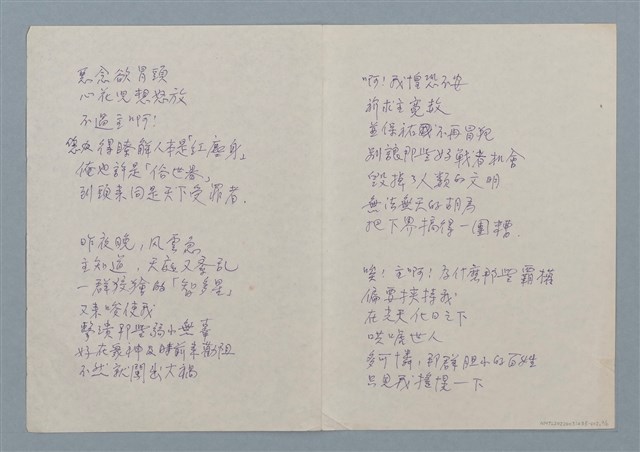 惡念欲冒頭
心花兒想怒放
不過主啊!
您必得瞭解人本是「紅塵身」
俺也許是「俗世眷」
到頭來同是天下受罪者.
昨夜晚，风雲急
主知道，天庭又登乱
一群狡獪的「智多星」
又來唆使我
擊潰那些弱小無辜
好在良神及時前來勸阻
不然就闖出大禍
啊!我惶恐不安
祈求主寬赦
並保祐我不再冒犯
別讓那些好戰者机會
毀掉了人類的文明
無法無天的胡為
把下界搞得一團糟.
唉!主啊!為什麼那些霸權
偏要挾持我
在光天化日之下
哄嚇世人
多可憐，那群胆小的百姓
只見我搖愰一下